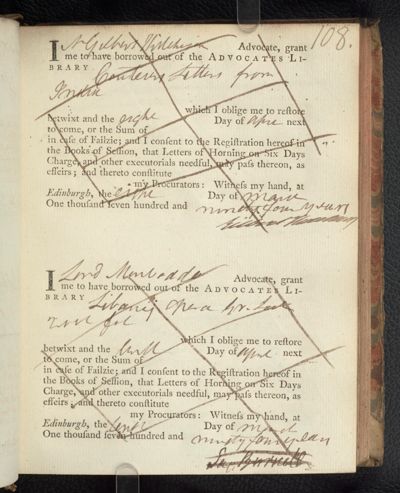 108.
I Gilbert Hutcheson Advocate, grant
me to have borrowed out of the ADVOCATES LI-
BRARY Letters from
which I oblige me to restore
betwixt and the eight Day of April next
to come, or the Sum of
in case of Failzie; and I consent to the Registration hereof in
the Books of Session, that Letters of Horning on Six Days
Charge, and other executorials needful, may pass thereon, as
effeirs; and thereto constitute
my Procurators: Witness my hand, at
Edinburgh, the eight Day of March
One thousand seven hundred and ninety four years
I Lord Monboddo Advocate, grant
me to have borrowed out of the ADVOCATES LI-
BRARY Libanij opera gr. Lat
fol
which I oblige me to restore
betwixt and the Day of April next
to come, or the Sum of
in case of Failzie; and I consent to the Registration hereof in
the Books of Session, that Letters of Horning on Six Days
Charge, and other executorials needful, may pass thereon, as
effeirs; and thereto constitute
my Procurators: Witness my hand, at
Edinburgh, the Day of March
One thousand seven hundred and ninety four years